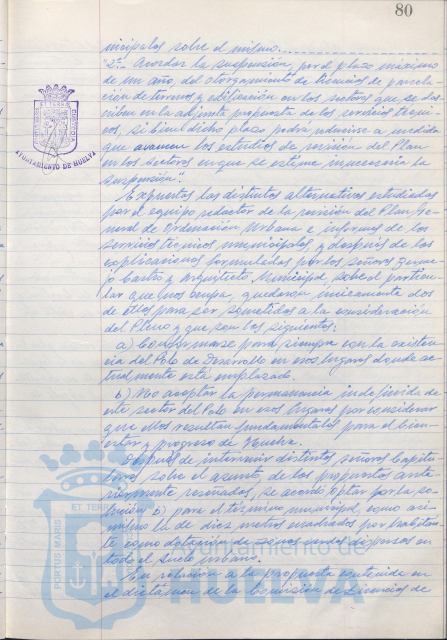 80
nicipales sobre el mismo.
"2º- Acordar la suspensión, por el plazo máximo
de un año, del otorgamiento de licencias de parcela-
ción de terrenos y edificación en los sectores que se des-
criben en la adjunta propuesta de los servicios técni-
cos, si bien dicho plazo podrá reducirse a medida
que avancen los estudios de revisión del Plan
en los sectores en que se estime innecesaria la
suspensión".
Expuestas las distintas alternativas estudiadas
por el equipo redactor de la revisión del Plan Ge-
neral de Ordenación Urbana e informes de los
servicios técnicos municipales, y después de las
explicaciones formuladas por los señores
Castro y Arquitecto Municipal, sobre el particu-
lar que nos ocupa, quedaron únicamente dos
de ellos para ser sometidos a la consideración
del Pleno y que son los siguientes:
a) Conformarse para siempre con la existen-
cia del Polo de Desarrollo en esos lugares donde ac-
tualmente está emplazado.
b) No aceptar la permanencia indefinida de
este sector del Polo en esos lugares por considerar
que ellos resultan fundamentales para el bien-
estar y progreso de Huelva.
Después de intervenir distintos señores Capitu-
lares sobre el asunto, de las propuestas ante-
riormente reseñadas, se acordó optar por la so-
lución b) para el término municipal, como asi-
mismo la de diez metros cuadrados por habitan-
te como dotación de zonas verdes dispersas en
todo el suelo urbano.
En relación a la propuesta contenida en
el dictamen de la Comisión de Licencias de
AYUNTAMIENTO DE HUELVA
PORTUS MARIS
ET TERRAE
Ayuntamiento de
HUELVA